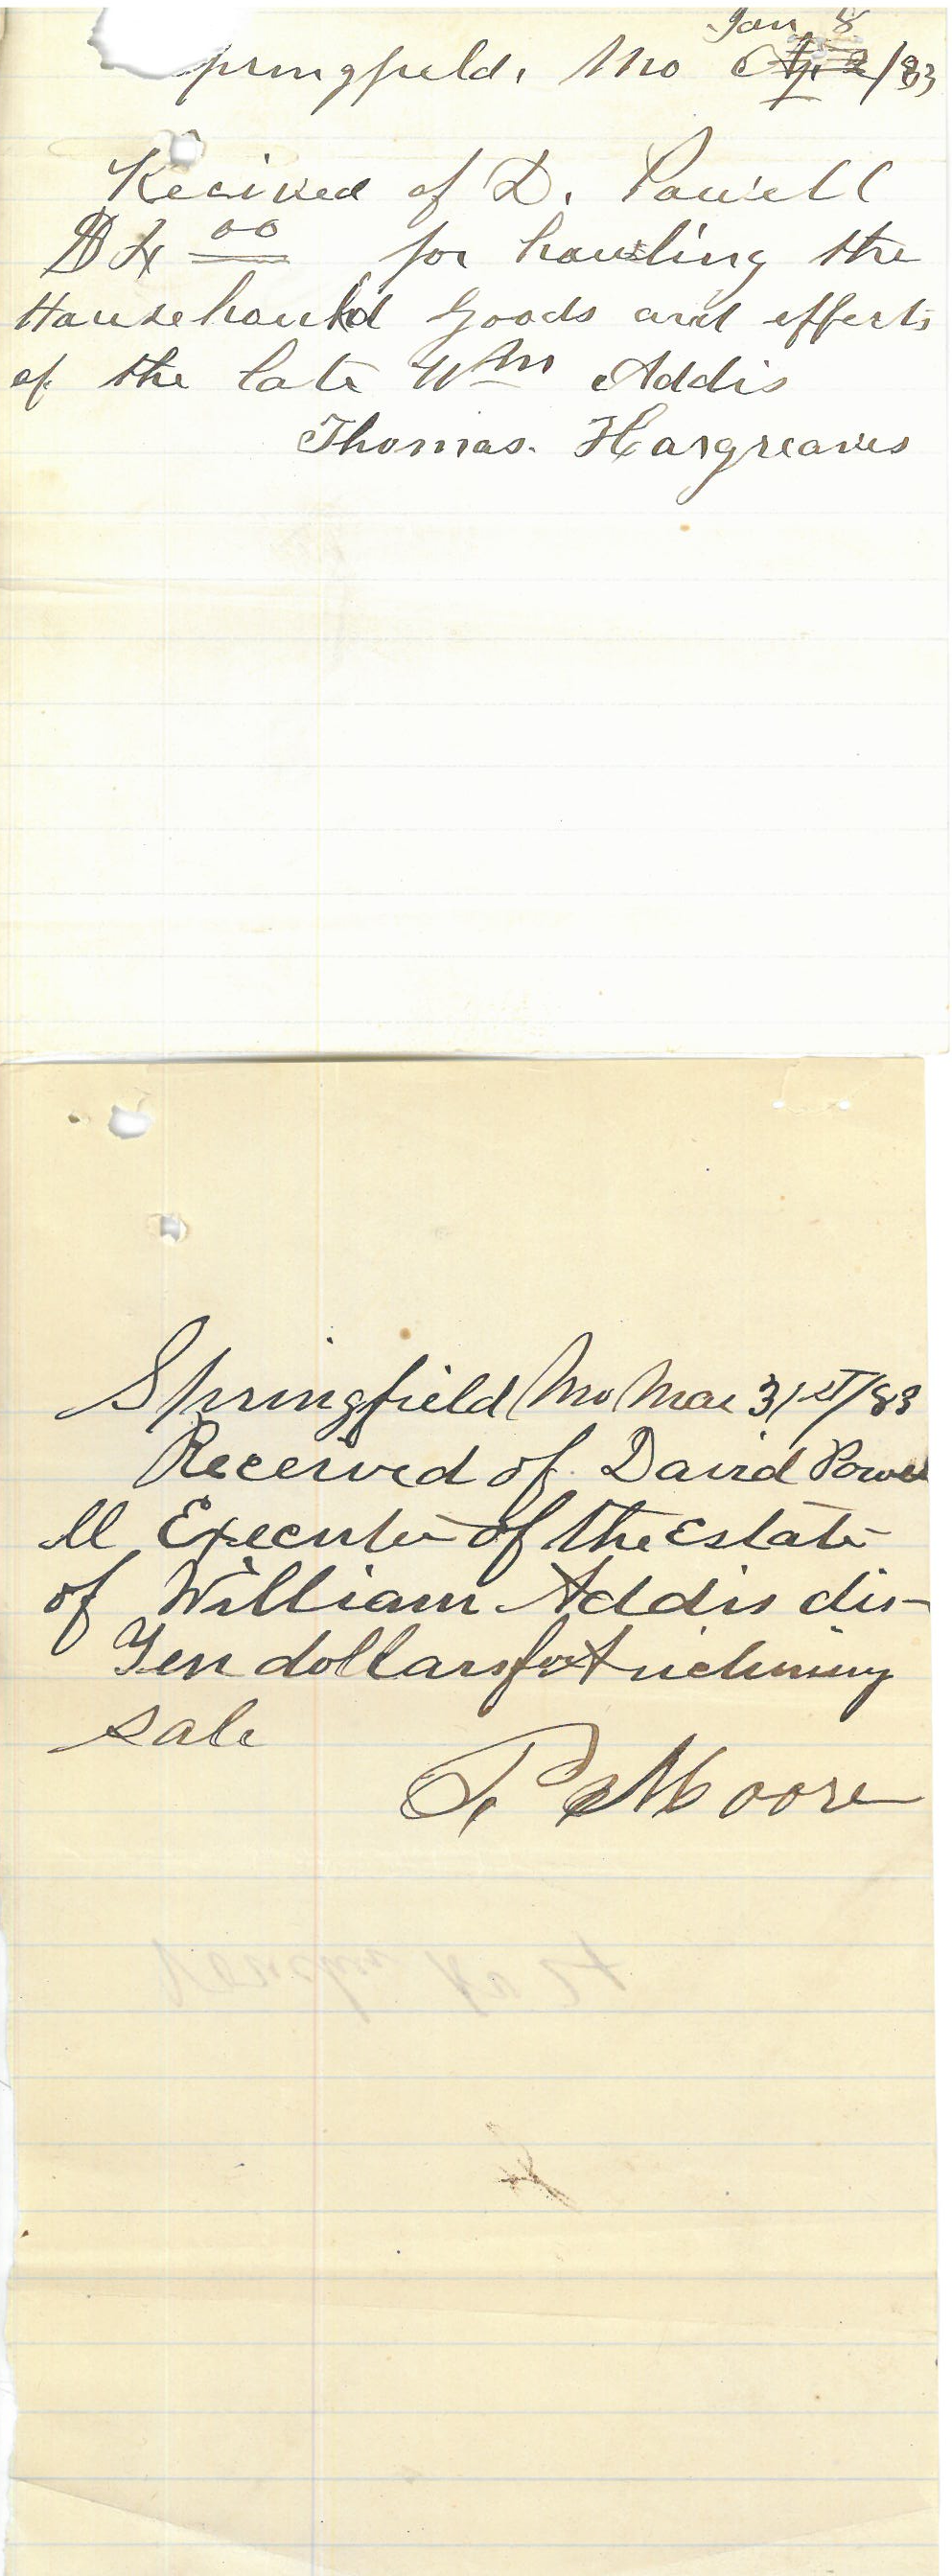 Jan 8
pringfield, Mo Ap 2/83
Recived of D. Powell
$4 00 for hauling the
Househould Goods and effects
of the late Wm Addis
Thomas. Hargreaves
Springfield Mo Mar 31st/83
Received of David Powe
ll Executor of the Estate
of William Addis dis-
Ten dollars for
sale
P Moore